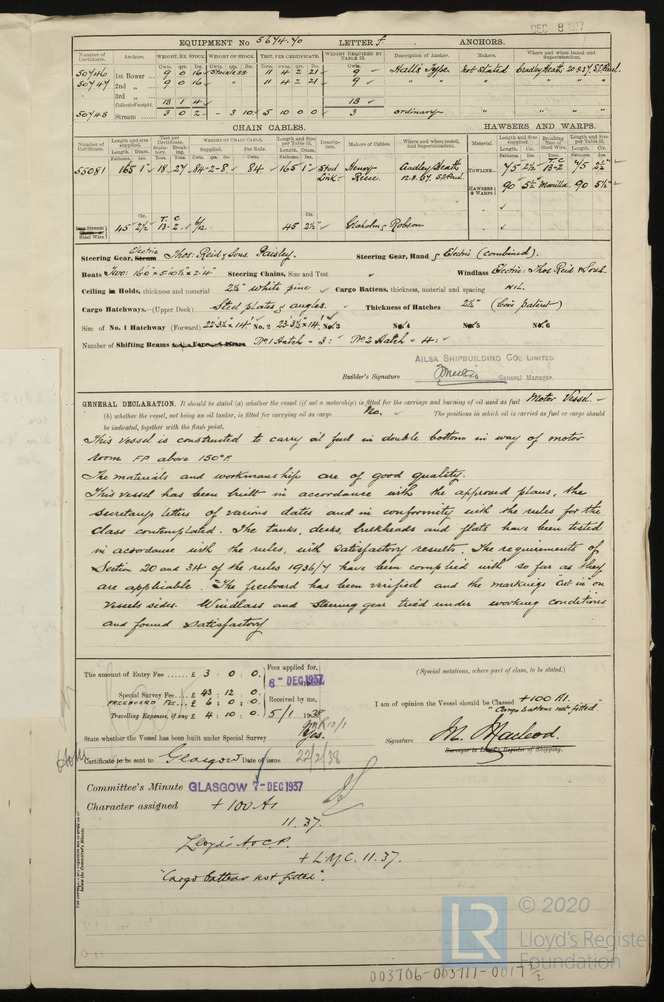 DEC 8
EQUIPMENT No 5674.70 LETTER f. ANCHORS.
Number of Certificate. Anchors. WEIGHT, EX. STOCK. WEIGHT OF STOCK. TEST, PER CERTIFICATE. WEIGHT REQUIRED BY TABLE 53. Description of Anchor. Makers. Where and when tested and Superintendent.
50746 1st Bower 9 0 16 Stockless 11 4 2 21 9 Hall's Type. Not Stated Cradley Heath 20.8.37 S.J. Paul.
50747 2nd " 9 0 16 " 11 4 2 21 9 " " " "
3rd "
Collective weight. 18 1 4 18
50748 Stream 3 0 2 - 3 10 5 10 0 0 3 ordinary " " "
CHAIN CABLES. HAWSERS AND WARPS.
Number of Certificate. Length and size supplied. Test per Certificate. WEIGHT OF CHAIN CABLE. Length and size per Table 53. Description. Makers of Cables. Where and when tested, and Superintendent. Material. Length and size supplied. Breaking Test of Steel Wire. Length and size per Table 53.
55081 165 1" 18 - 27 84-2-8 84 165 1" Stud Link Henry Reece. Cradley Heath 12.8.37. TOWLINE 75 2½" T. C 13-2 75 2½"
HAWSERS & WARPS 90 5½ Manilla. 90 5½"
Stream Steel Wire 45 2½" T. C 13-2 45 2½" Graham & Robson
Steering Gear, Steam Electric Thos: Reid & Sons Paisley. Steering Gear, Hand & Electric (combined).
Boats Two: 16'0 x 5'10½" x 2'4" Steering Chains, Size and Test Windlass Electric: Thos. Reid & Sons
Ceiling in Holds, thickness and material 2½" white pine Cargo Battens, thickness, material and spacing NIL.
Cargo Hatchways.—(Upper Deck). Steel plates & angles. Thickness of Hatches 2½" (Coir patent)
Size of No. 1 Hatchway (Forward) 22'3½" x 14' No. 2 23'3½" x 14' No. 3 No. 4 No. 5 No. 6
Number of Shifting Beams No 1 Hatch = 3: No 2 Hatch = 4:
AILSA SHIPBUILDING CO., LIMITED
Builder's Signature General Manager.
GENERAL DECLARATION. It should be stated (a) whether the vessel (if not a motorship) is fitted for the carriage and burning of oil used as fuel Motor Vessel.
(b) whether the vessel, not being an oil tanker, is fitted for carrying oil as cargo No. The positions in which oil is carried as fuel or cargo should
be indicated, together with the flash point.
This vessel is constructed to carry oil fuel in double bottom in way of motor
room FP above 150°F.
The materials and workmanship are of good quality.
This vessel has been built in accordance with the approved plans, the
Secretarys letters of various dates and in conformity with the rules for the
class contemplated. The tanks, decks, bulkheads and flats have been tested
in accordance with the rules, with satisfactory results. The requirements of
Section 20 and 34 of the rules 1936/7 have been complied with so far as they
are applicable. The freeboard has been verified and the markings cut in on
vessels sides. Windlass and Steering gear tried under working conditions
and found satisfactory
The amount of Entry Fee £ 3 : 0 : 0. Fees applied for,
6 - DEC. 1937
Special Survey Fee £ 43 : 12 : 0.
FREEBOARD FEE £ 6 : 0 : 0. Received by me,
Travelling Expenses, if any £ 4 : 10 : 0. 5/1 1938
State whether the Vessel has been built under Special Survey Yes.
Certificate to be sent to Glasgow Date of issue 22/2/38
(Special notations, where part of class, to be stated.)
I am of opinion the Vessel should be Classed +100 A1.
"Cargo battens not fitted".
Signature M. Macleod.
Surveyor to Lloyd's Register of Shipping.
Committee's Minute GLASGOW 7 - DEC 1937
Character assigned +100 A1
11.37.
Lloyd's A & C.P.
+ L.M.C. 11.37.
"Cargo battens not fitted".
LR © 2020
Lloyd's Register
Foundation
003706-003711-0017 ½